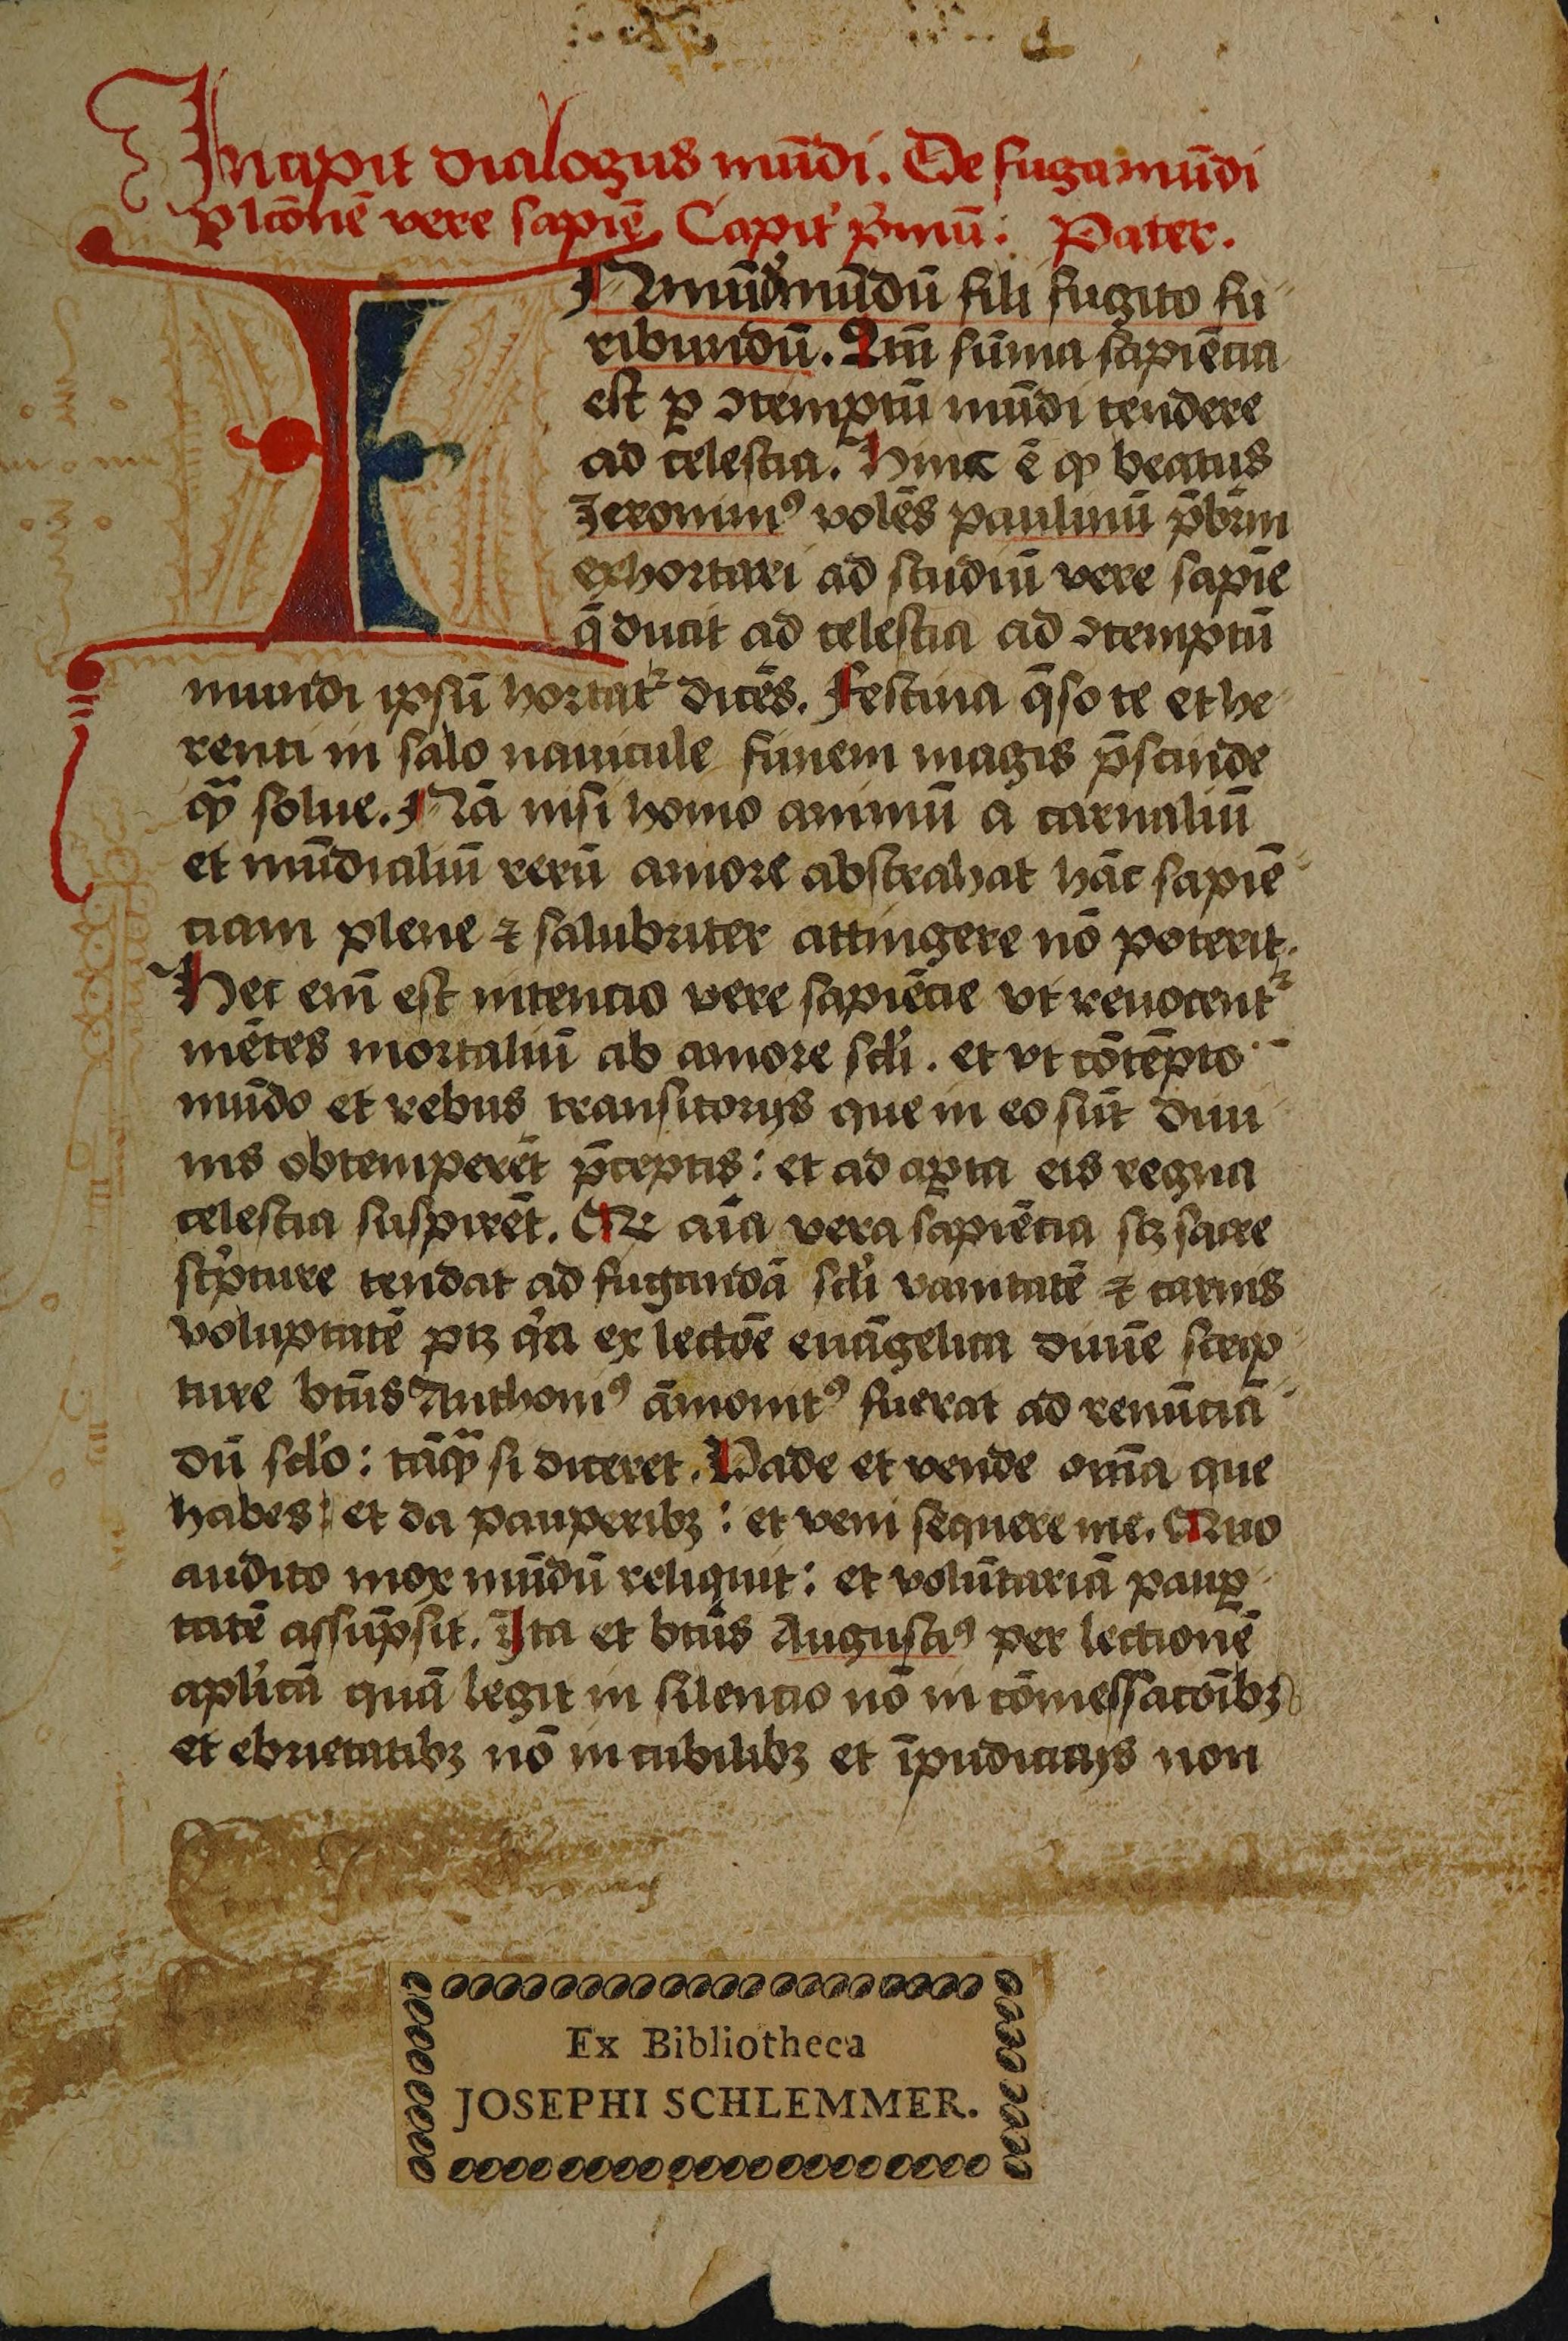 Incipit dialogus mūdi. De fuga mūdi
p lc̄onē vere sapiē. Capit' p'mū: Pater.
INmūdū mūdū fili fugito fu
ribundū. Nā sūma sapiēcia
est p ꝯtemptū mūdi tendere
ad celestia. Hinc ē ꝙ beatus
Jeronimꝰ volēs paulinū p̄br̄m
exhortari ad studiū vere sapiē
q̄ ducit ad celestia ad ꝯtemptū
mundi ipsū hortat᷑ dicēs. Festina q̄so te et he
renti in salo nauicule funem magis p̄scinde
ꝙ̄ solue. Nā nisi homo animū a carnaliū
et mūdialiū rerū amore abstrahat hāc sapiē
ciam plene ⁊ salubriter attingere nō poterit.
Hec enī est intencio vere sapiēcie vt reuocent᷑
mētes mortaliū ab amore scl'i. et vt cōtēpto
mūdo et rebus transitorijs que in eo sūt diui
nis obtemperēt p̄ceptis: et ad apta eis regna
celestia suspirēt. Qꝫ aūa vera sapiēcia sꝫ sacre
sc'pture tendat ad fugandā scl'i vanitatē ⁊ carnis
voluptatē ptꝫ q'a ex lectōe euāgelica diuīe scrip
ture bt̄us Anthoniꝰ āmonitꝰ fuerat ad renūciā
dū scl'o: tāꝙ̄ si diceret. Vade et vende om̄ia que
habes: et da pauperibꝫ: et veni sequere me. Quo
audito mox mūdū reliquit: et volūtariā paup
tatē assūpsit. Ita et bt̄us Augustiꝰ per lectionē
apl'icā quā legit in silencio nō in cōmessacōibꝫ
et ebrietatibꝫ nō in cubilibꝫ et īpudicicijs non
Ex Bibliotheca
JOSEPHI SCHLEMMER.